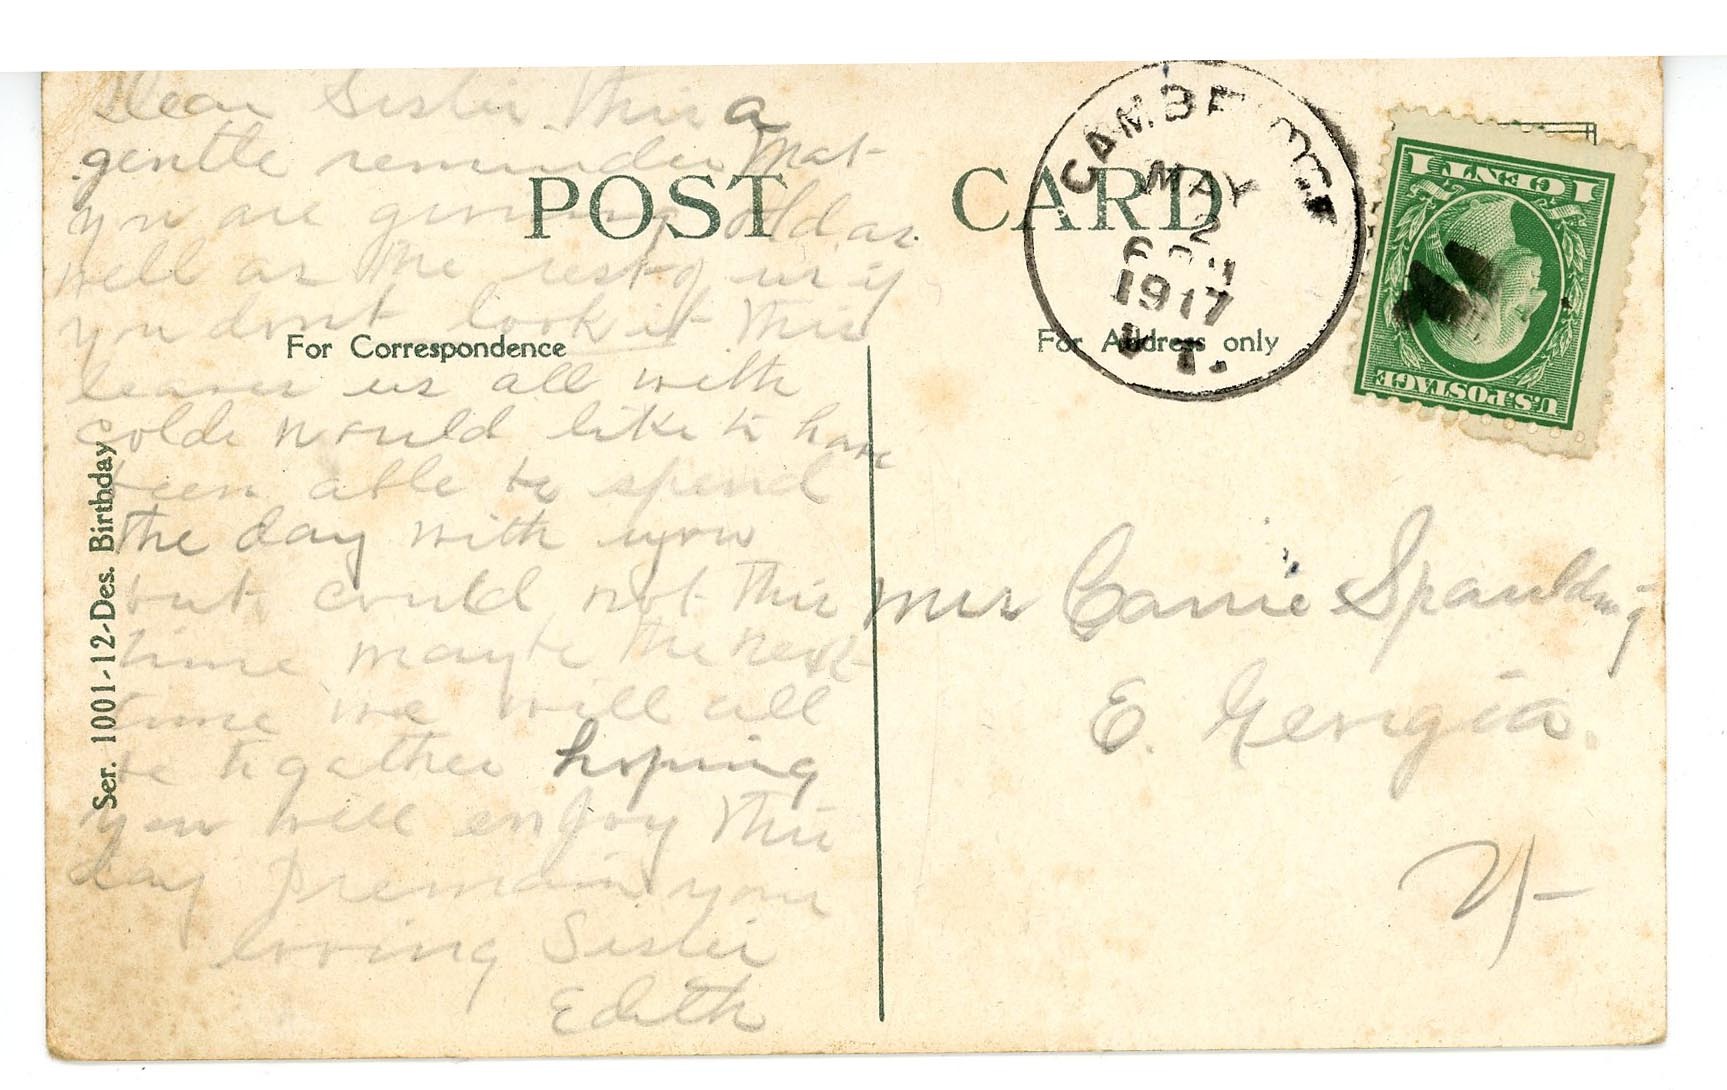 Dear Sister this a
gentle reminder that
you are growing old as
well as the rest of us if
you dont look it This
leaves us all with
colds would like to have
been able to spend
the day with you
but could not this
time maybe the next
time we will all
be together hoping
you will enjoy this
day I remain your
loving Sister
Edith
POST CARD
For Correspondence
For Address only
Ser. 1001-12-Des. Birthday
CAMBRIDGE
MAY
2
6 PM
1917
VT.
1 CENT 1
U.S. POSTAGE
Mrs Carrie Spaulding
E. Georgia.
Vt